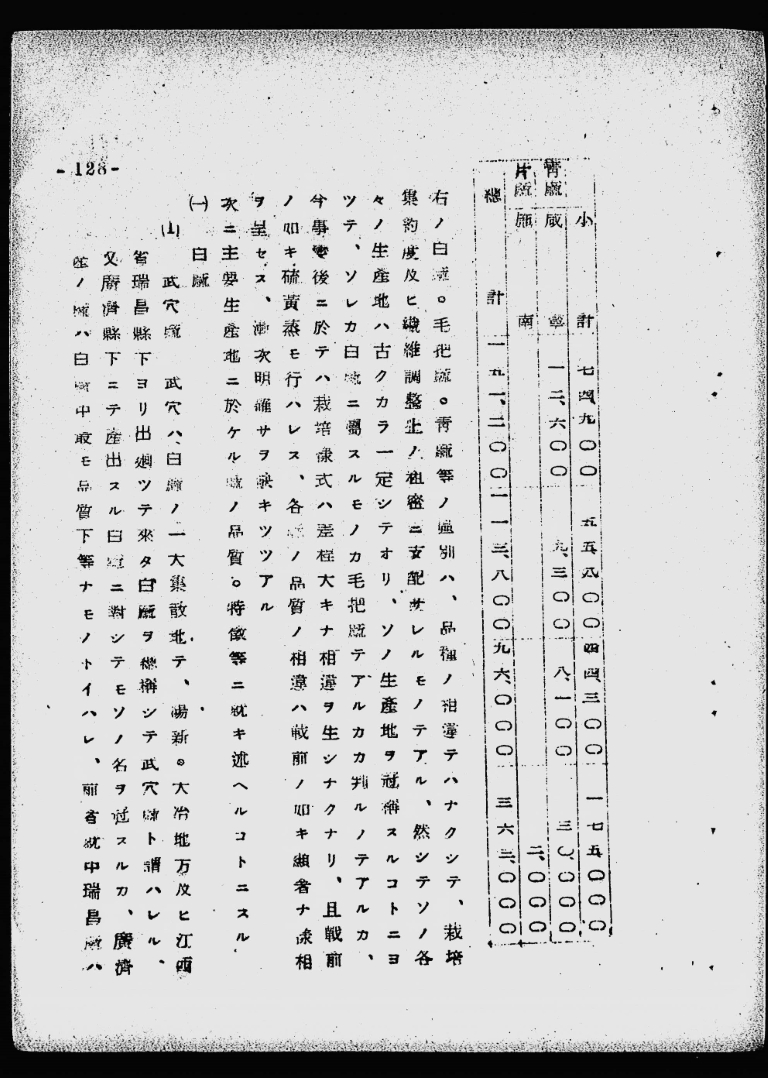 小計 七四、九〇〇 五五、八〇〇 四四、三〇〇 一七五、〇〇〇
青麻 咸寧 一二、六〇〇 九、三〇〇 八、一〇〇 三〇、〇〇〇
片麻 南 二、〇〇〇
總計 一五一、二〇〇 一一三、八〇〇 九六、〇〇〇 三六三、〇〇〇
右ノ白麻。毛把麻。青麻等ノ種別ハ、品種ノ相違テハナクシテ、栽培
集約度及ヒ纖維調整上ノ粗密ニ支配サレルモノテアル、然シテソノ各
々ノ生産地ハ古クカラ一定シテオリ、ソノ生産地ヲ冠稱スルコトニヨ
ツテ、ソレカ白麻ニ屬スルモノカ毛把麻テアルカカ判ルノテアルカ、
今事變後ニ於テハ栽培樣式ハ差程大キナ相違ヲ生シナクナリ、且戰前
ノ如キ硫黃蒸モ行ハレス、各麻ノ品質ノ相違ハ戰前ノ如キ顯著ナ樣相
ヲ呈セス、漸次明確サヲ缺キツツアル
次ニ主要生産地ニ於ケル麻ノ品質。特徵等ニ就キ述ヘルコトニスル
㈠ 白麻
(1) 武穴麻 武穴ハ白麻ノ一大集散地テ、陽新。大冶地方及ヒ江西
省瑞昌縣下ヨリ出廻ツテ來タ白麻ヲ總稱シテ武穴麻ト謂ハレル、
又廣濟縣下ニテ産出スル白麻ニ對シテモソノ名ヲ冠スルカ、廣濟
産ノ麻ハ白麻中最モ品質下等ナモノトイハレ、前者就中瑞昌麻ハ
-128-